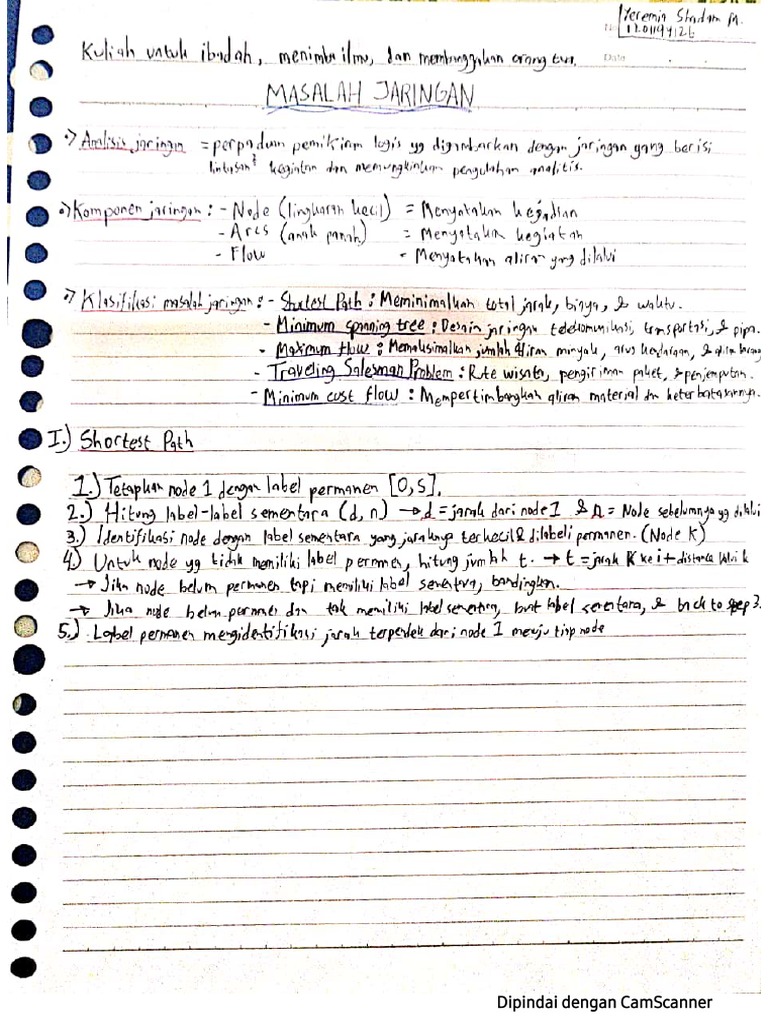 Yeremia Shadam M.
No
Kuliah untuk ibadah, menimba ilmu, dan membanggakan orang tua.
Date
MASALAH JARINGAN
Analisis jaringan = perpaduan pemikiran logis yg digambarkan dengan jaringan yang berisi
lintasan² kegiatan dan memungkinkan pengolahan analitis.
Komponen jaringan : - Node (lingkaran kecil) = Menyatakan kejadian
- Arcs (anak panah) = Menyatakan kegiatan
- Flow = Menyatakan aliran yang dilalui
Klasifikasi masalah jaringan : - Shortest Path : Meminimalkan total jarak, biaya, & waktu.
- Minimum spanning tree : Desain jaringan telekomunikasi, transportasi, & pipa.
- Maximum flow : Memaksimalkan jumlah aliran minyak, arus kendaraan, & aliran barang
- Traveling Salesman Problem : Rute wisata, pengiriman paket, & penjemputan.
- Minimum cost flow : Mempertimbangkan aliran material dan keterbatasannya.
I.) Shortest Path
1.) Tetapkan node 1 dengan label permanen [0,S].
2.) Hitung label-label sementara (d, n) → d = jarak dari node 1 & n = Node sebelumnya yg dilalui
3.) Identifikasi node dengan label sementara yang jaraknya terkecil & dilabeli permanen. (Node K)
4.) Untuk node yg tidak memiliki label permanen, hitung jumlah t. → t = jarak K ke i + distance label k
→ Jika node belum permanen tapi memiliki label sementara, bandingkan.
→ Jika node belum permanen dan tak memiliki label sementara, buat label sementara, & back to step 3.
5.) Label permanen mengidentifikasi jarak terpendek dari node 1 menuju tiap node
Dipindai dengan CamScanner